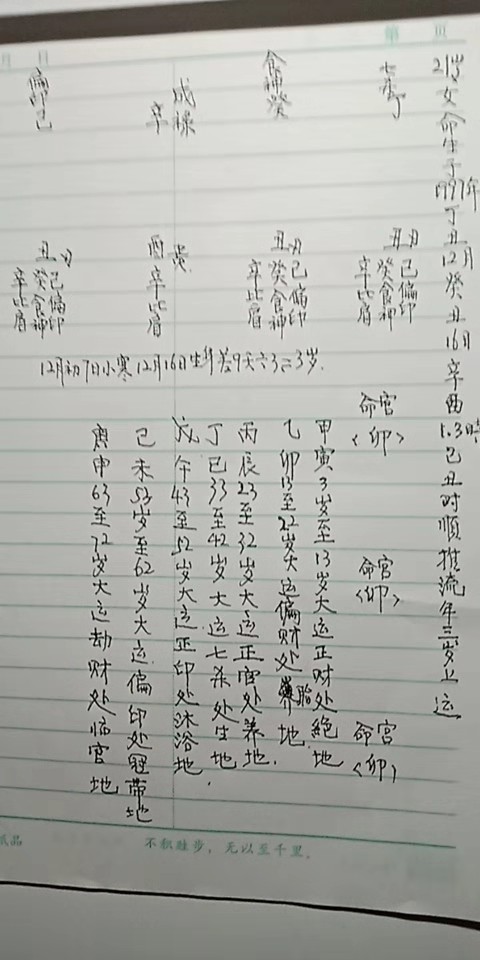 第 页
月 日
21岁女命生于1997年丁丑12月癸丑16日辛酉1.3時己丑时順推流年三岁上运
七杀丁
食神癸
成祿
辛
偏印己
丑
己偏印
癸食神
辛比肩
丑
己偏印
癸食神
辛比肩
酉
辛比肩
丑
己偏印
癸食神
辛比肩
12月初7日小寒12月16日生年差9天六3=3岁.
命宫
<卯>
命宫
<卯>
命宫
<卯>
甲寅3岁至13岁大运正财处絕地
乙卯13至22岁大运偏财处胎地.
丙辰23至32岁大运正官处养地.
丁巳33至42岁大运七杀处生地.
戊午43至52岁大运正印处沐浴地
己未53岁至62岁大运偏印处冠带地
庚申63至72岁大运劫财处临官地
纸品
不积跬步，无以至千里。